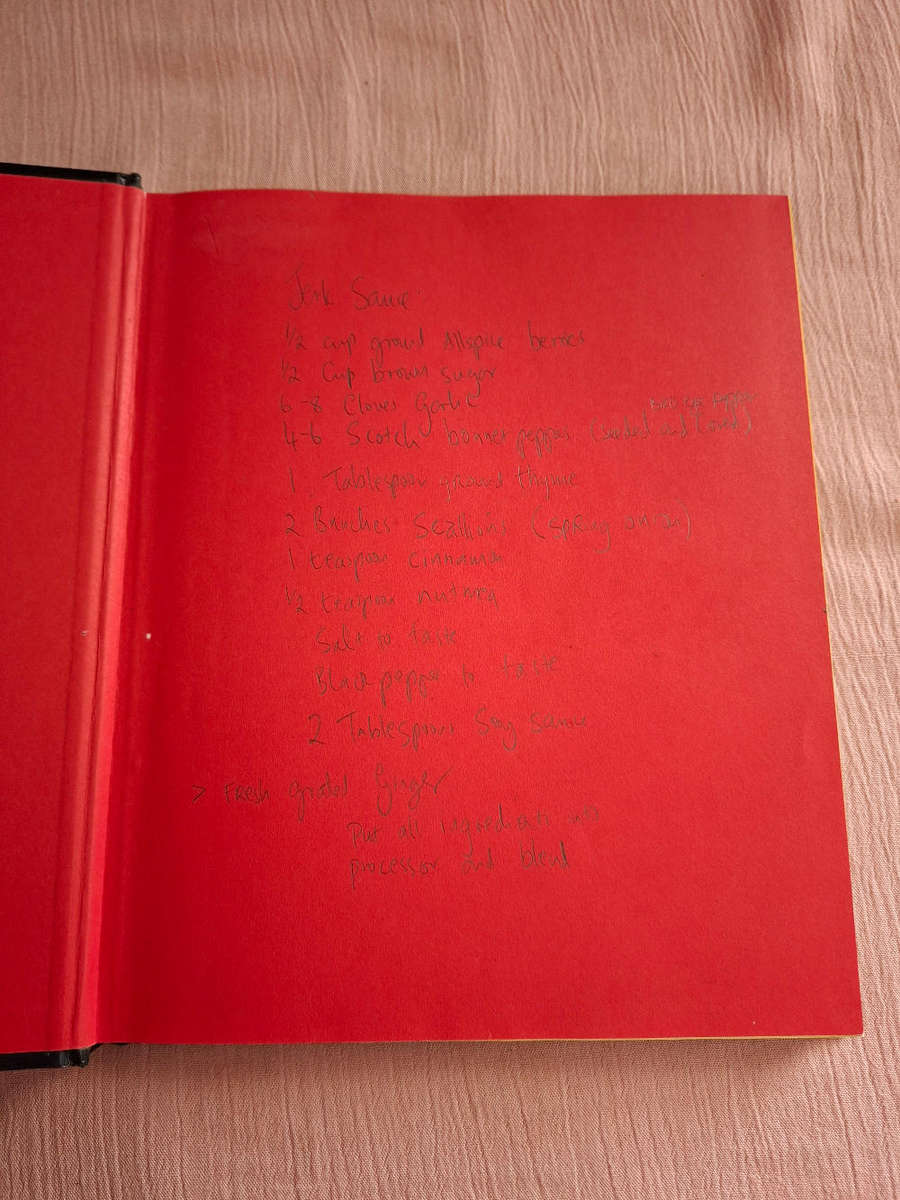 Jerk Sauce
1/2 cup ground Allspice berries
1/2 Cup brown sugar
6-8 Cloves Garlic
pepper
4-6 Scotch bonnet pepper (seeded and cored)
1 Tablespoon ground thyme
2 Bunches Scallions (spring onion)
1 teaspoon cinnamon
1/2 teaspoon nutmeg
Salt to taste
Black pepper to taste
2 Tablespoons Soy sauce
> FRESH grated Ginger
Put all ingredients into
processor and blend